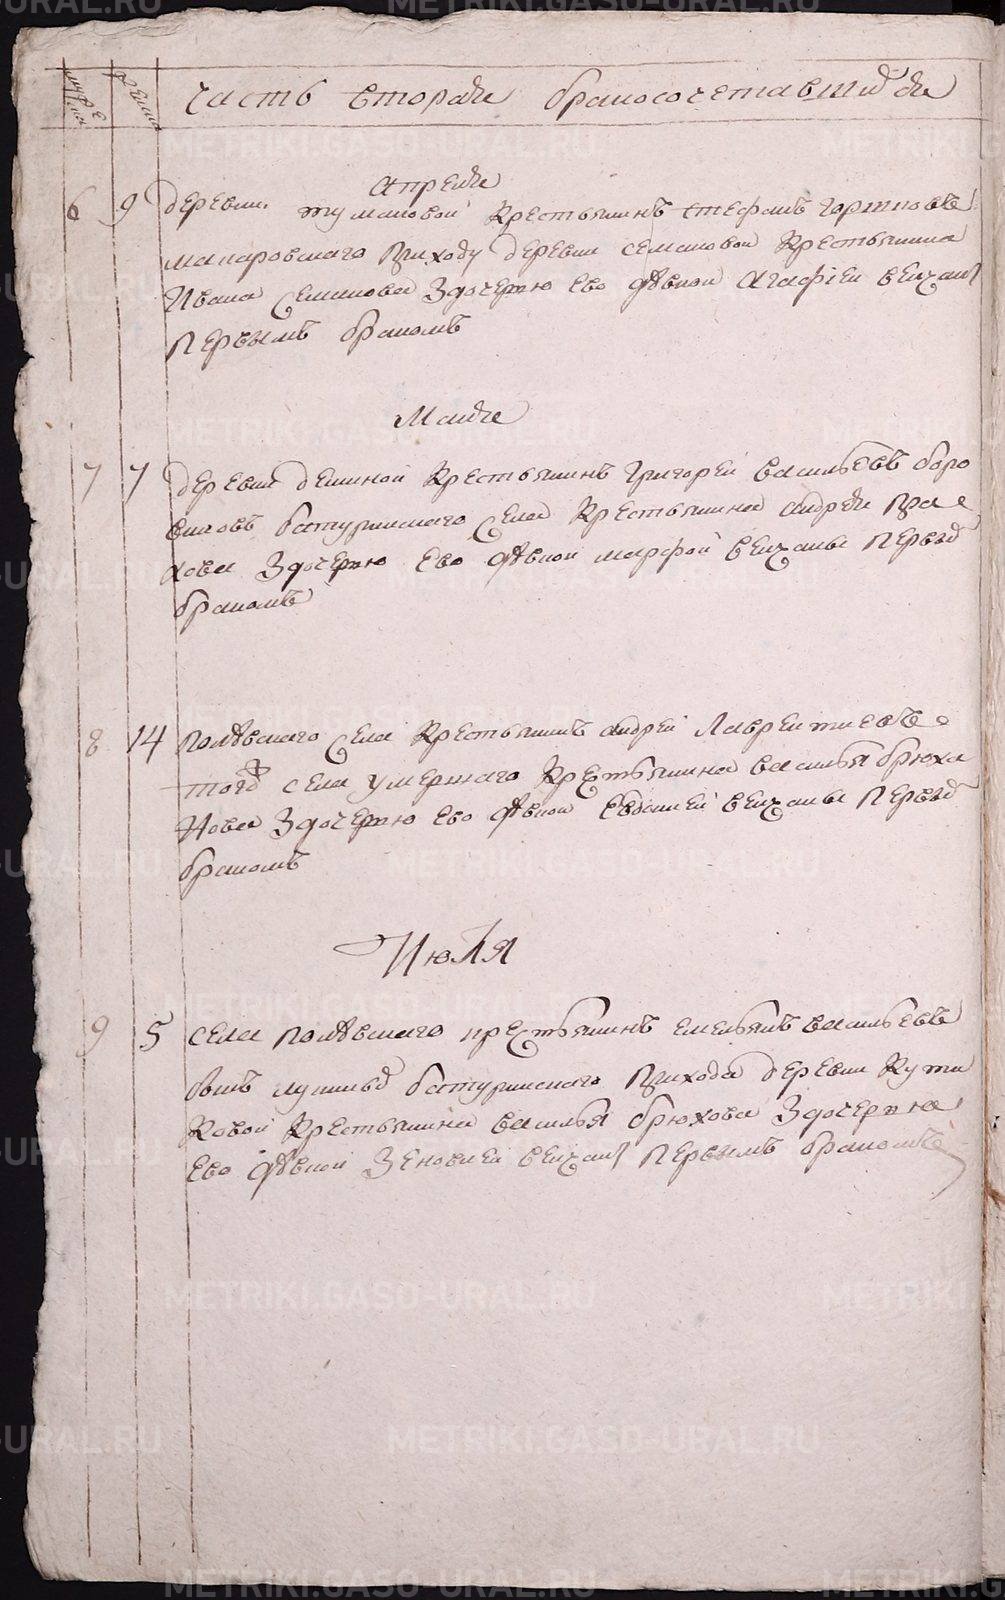 Часть вторая бракосочетавшихся
Апреля
6 9 деревни тумановой крестьянинъ стефанъ
макаровскаго приходу деревни семановой крестьянина
Ивана Семанова здочерью ево девкой агафiей венчаны
первымъ бракомъ
Майя
7 7 деревни деминой крестьянинъ григорей васильевъ боро
виковъ батуринскаго села крестьянина андрея
здочерью ево девкой марфой венчаны первым
бракомъ
8 14 полевскаго села крестьянинъ андрей лаврентиевъ
того села умершаго крестьянина василья брюха
нова здочерью ево девкой евдокией венчаны первым
бракомъ
Июля
9 5 села полевскаго крестьянинъ емельянъ васильевъ
батуринскаго прихода деревни кути
ковой крестьянина василья брюхова здочерью
ево девкой зеновией венчаны первымъ бракомъ
METRIKI.GASO-URAL.RU